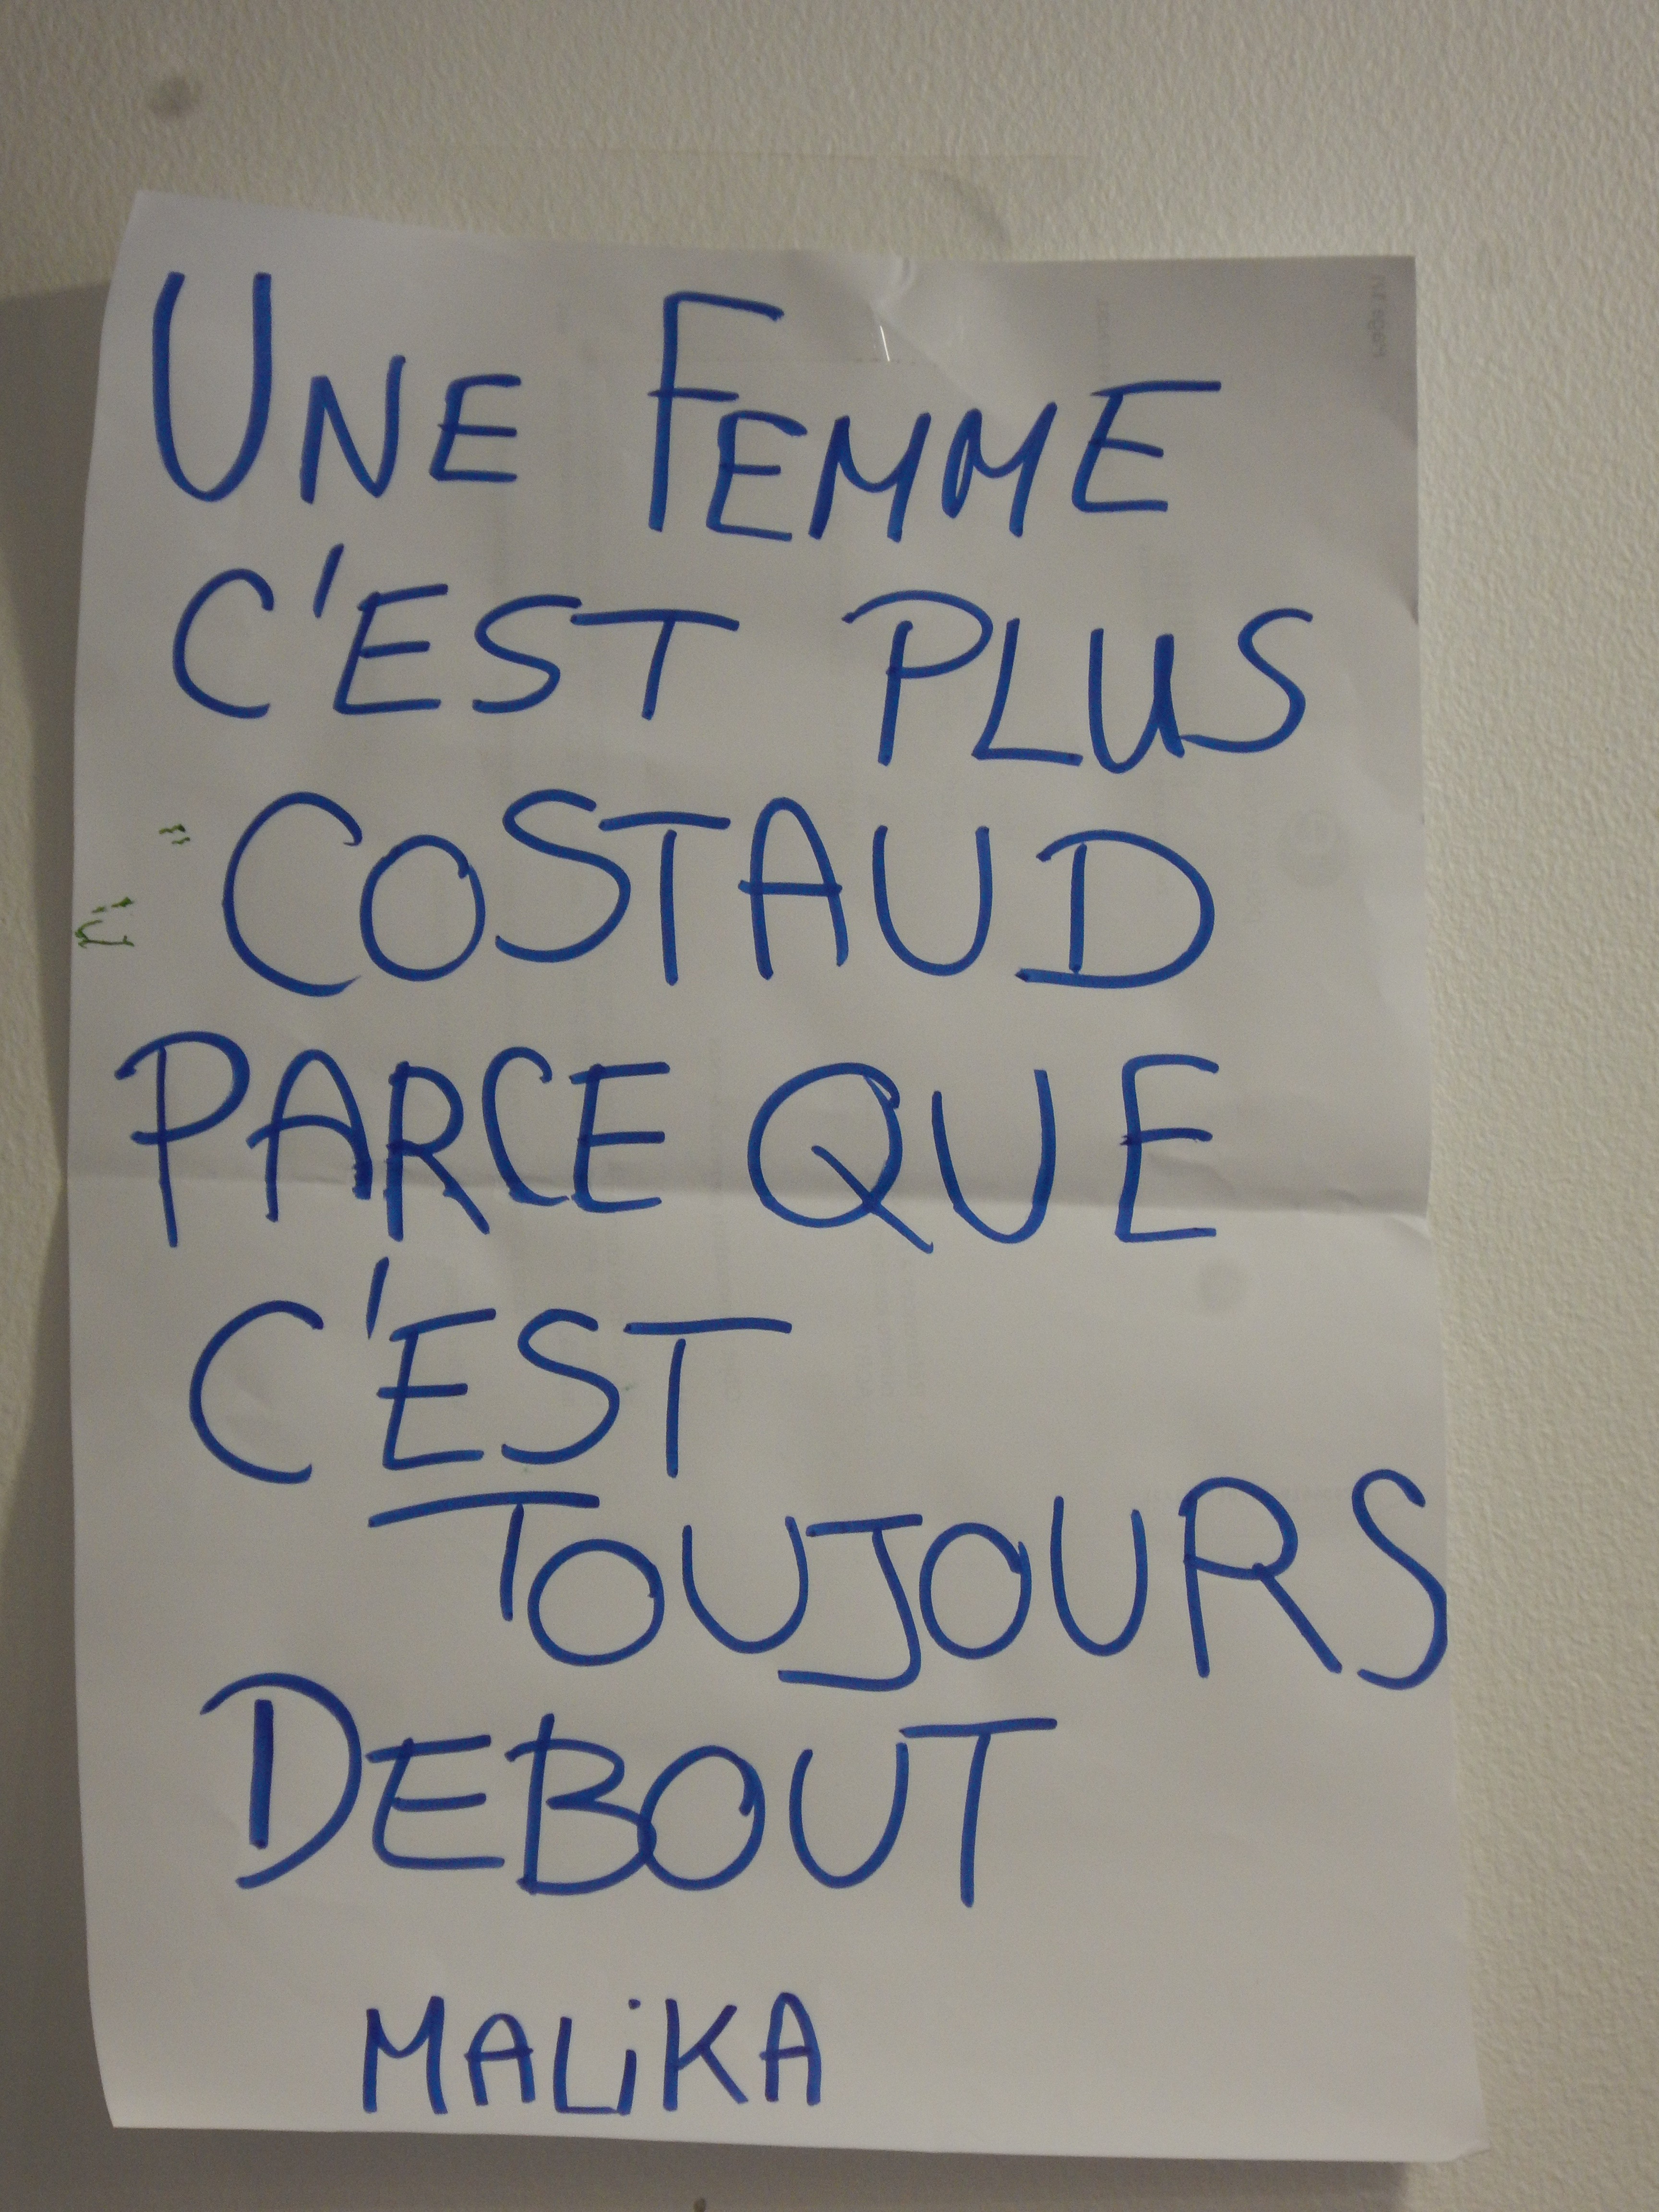 UNE FEMME
C'EST PLUS
COSTAUD
PARCE QUE
C'EST
TOUJOURS
DEBOUT
MALiKA